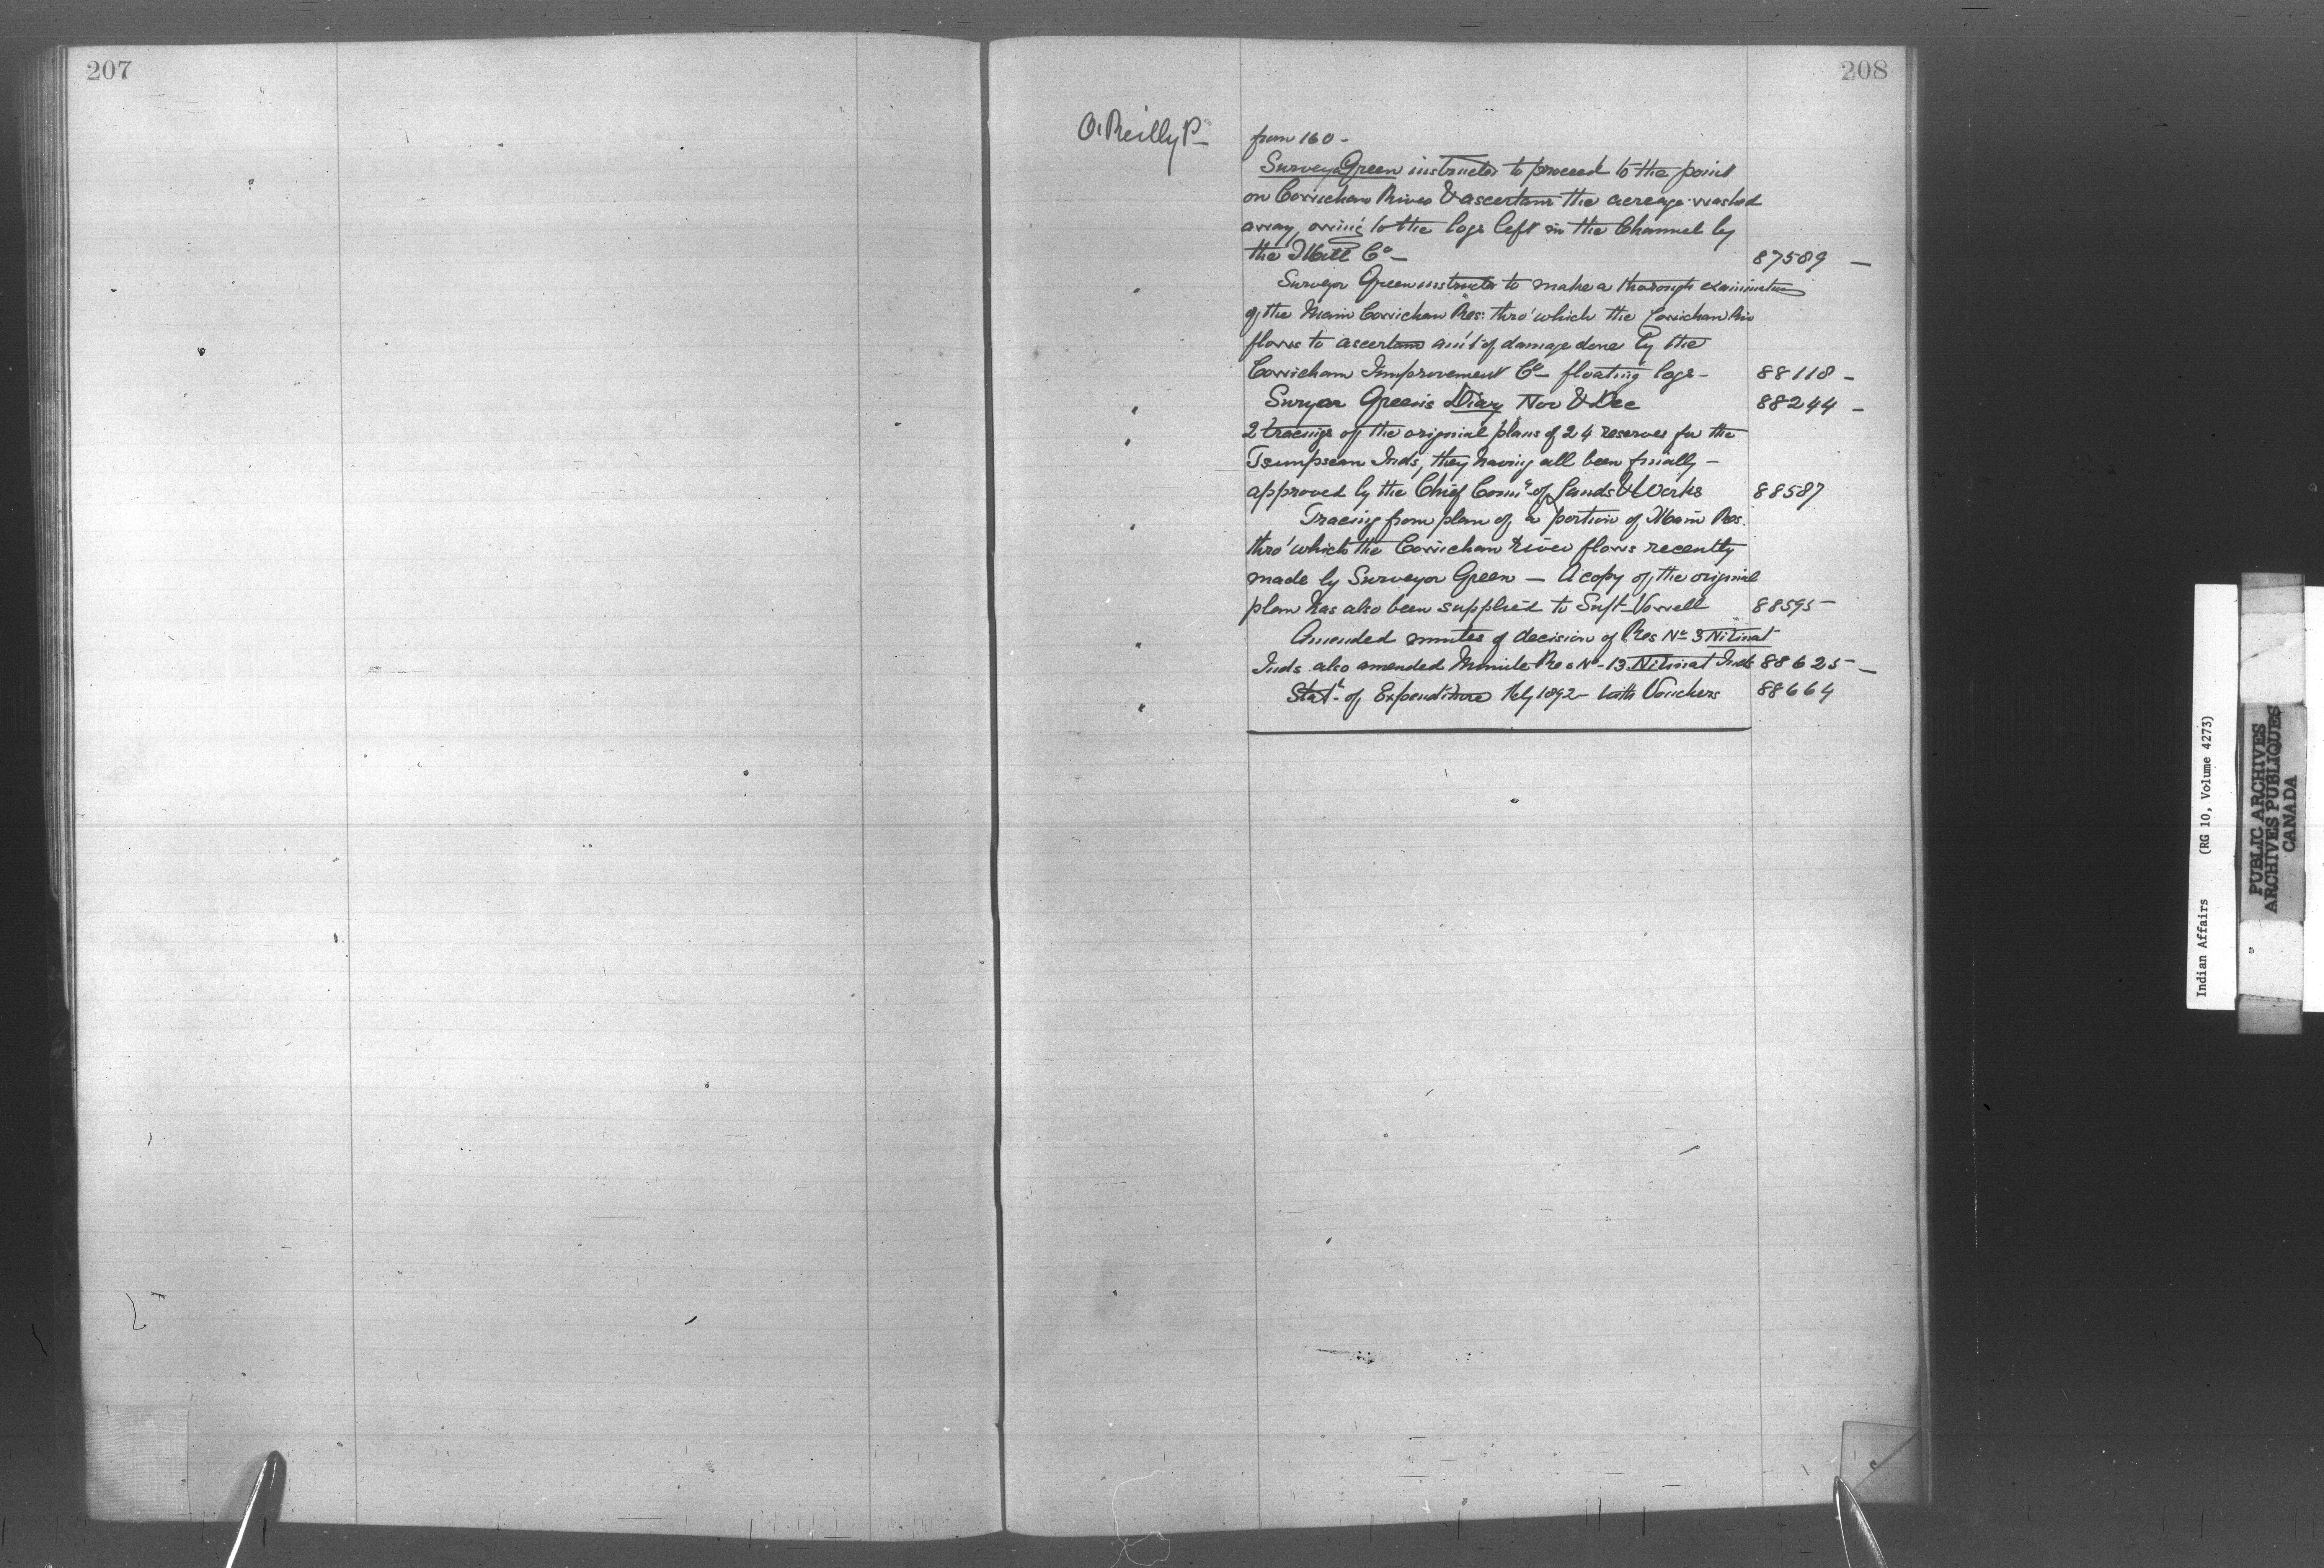 207
208
O'Reilly P-
from 160 -
Surveyor Green instructed to proceed to the point
on Cowichan River & ascertain the acreage washed
away, owing to the logs left in the Channel by
the Mill Co - 87589 -
Surveyor Green instructed to make a thorough examination
of the Main Cowichan Res: thro' which the Cowichan Riv
flows to ascertain am't of damage done by the
Cowichan Improvement Co - floating logs - 88118 -
Suryor Green's Diary Nov & Dec 88244 -
2 tracings of the original plans of 24 reserves for the
Tsimpsean Inds, they having all been finally -
approved by the Chief Comr of Lands & Works 88587
Tracing from plan of a portion of Main Res.
thro' which the Cowichan River flows recently
made by Surveyor Green - A copy of the original
plan has also been supplied to Supt Vowell 88595 -
Amended minutes of decision of Res No 3 Nitinat
Inds. also amended Minute Res No - 13 Nitinat Inds 88625 -
Stat- of Expenditure 1892 - with Vouchers 88664
Indian Affairs (RG 10, Volume 4273)
PUBLIC ARCHIVES
ARCHIVES PUBLIQUES
CANADA